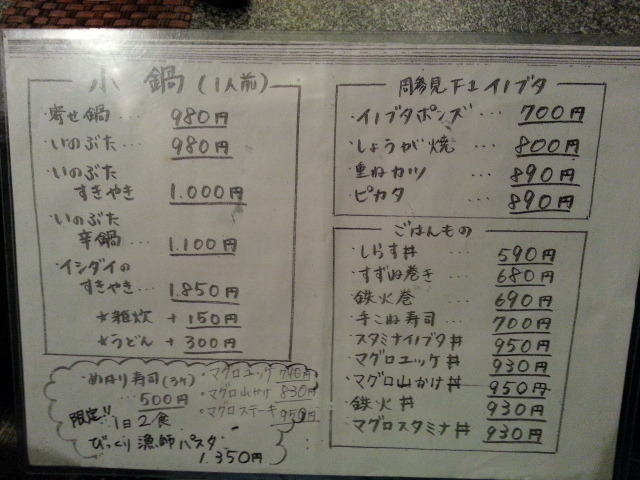 小鍋(1人前)
・寄せ鍋… 980円
・いのぶた… 980円
・いのぶた
すきやき 1.000円
・いのぶた
辛鍋… 1.100円
・イシダイの
すきやき… 1.850円
★雑炊 + 150円
★うどん + 300円
周参見下エイノブタ
・イノブタポンズ… 700円
・しょうが焼 … 800円
・重ねカツ … 890円
・ピカタ … 890円
ごはんもの
・しらす丼 … 590円
・すずめ巻き … 680円
・鉄火巻 … 690円
・手こね寿司… 700円
・スタミナイノブタ丼 950円
・マグロユッケ丼 930円
・マグロ山かけ丼 950円
・鉄火丼 930円
・マグロスタミナ丼 930円
・めはり寿司(3ケ)
… 500円
・マグロユッケ 790円
・マグロ山かけ 830円
・マグロステーキ 950円
限定!!
1日2食
びっくり漁師パスタ
1.350円